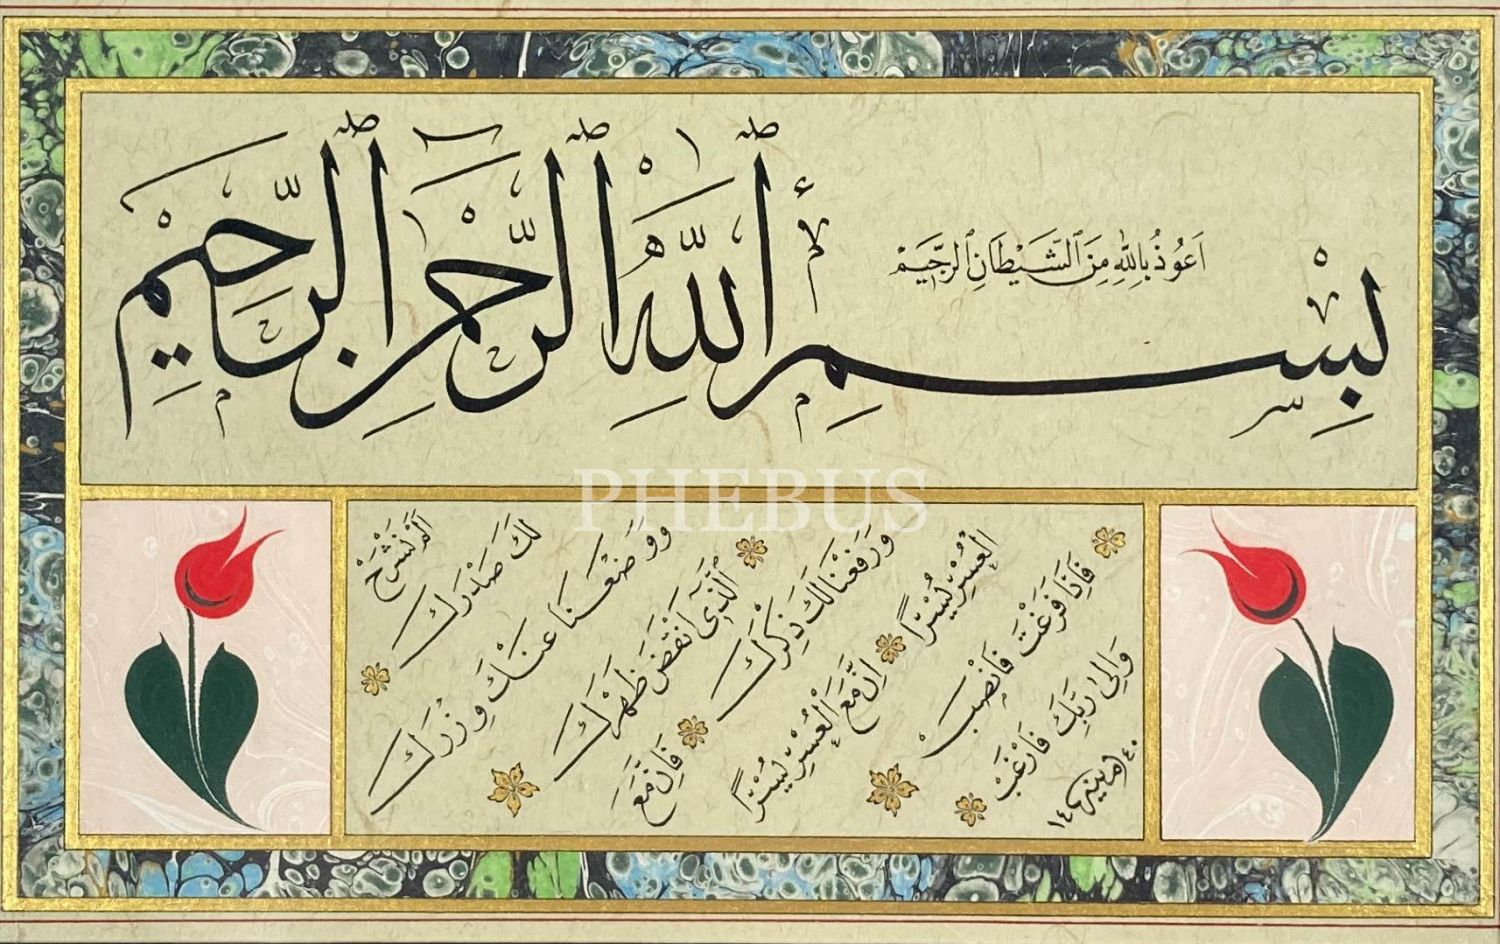 اَعُوذُ بِاللهِ مِنَ ٱلشَّيْطَانِ ٱلرَّجِيمِ
بِسْمِ ٱللَّهِ ٱلرَّحْمٰنِ ٱلرَّحِيمِ
PHEBUS
اَلَمْ نَشْرَحْ
لَكَ صَدْرَكَ
وَوَضَعْنَا عَنْكَ وِزْرَكَ
ٱلَّذِٓى اَنْقَضَ ظَهْرَكَ
وَرَفَعْنَا لَكَ ذِكْرَكَ
فَاِنَّ مَعَ
الْعُسْرِ يُسْرًا
اِنَّ مَعَ الْعُسْرِ يُسْرًا
فَاِذَا فَرَغْتَ فَانْصَبْ
وَاِلٰى رَبِّكَ فَارْغَبْ